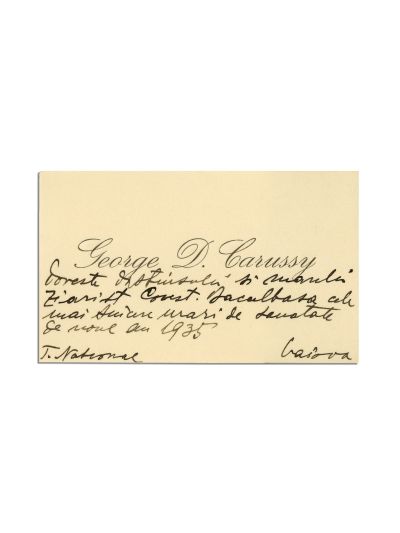 George D. Carussy
doreste distinsului si marelui
ziarist Const. Bacalbasa cele
mai sincere urari de sanatate
de noul an 1935
T. National Craiova